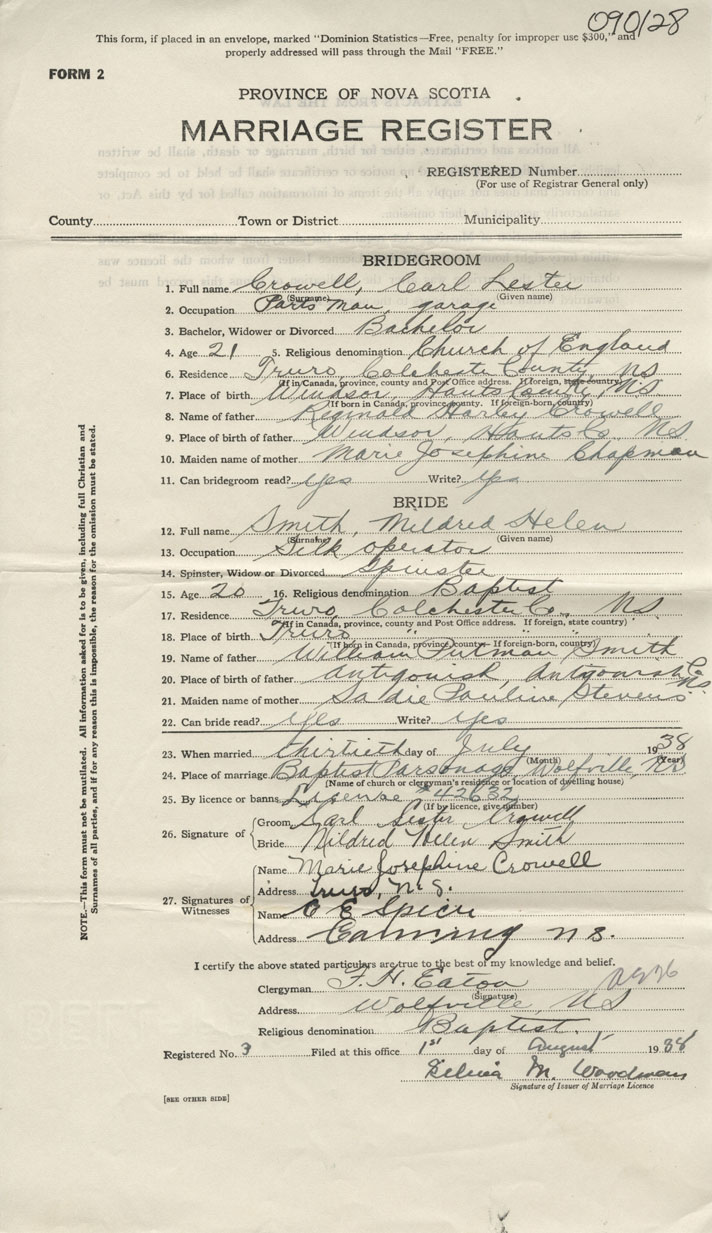 090128
This form, if placed in an envelope, marked "Dominion Statistics—Free, penalty for improper use $300," and
properly addressed will pass through the Mail "FREE."
FORM 2
PROVINCE OF NOVA SCOTIA
MARRIAGE REGISTER
REGISTERED Number
(For use of Registrar General only)
County Town or District Municipality
BRIDEGROOM
1. Full name Crowell, Carl Lester
(Surname) (Given name)
2. Occupation Parts man, garage
3. Bachelor, Widower or Divorced Bachelor
4. Age 21 5. Religious denomination Church of England
6. Residence Truro, Colchester County, NS
(If in Canada, province, county and Post Office address. If foreign, state country)
7. Place of birth Windsor, Hants County, NS
(If born in Canada, province, county. If foreign-born, country)
8. Name of father Reginald Harley Crowell
9. Place of birth of father Windsor, Hants Co. NS.
10. Maiden name of mother Marie Josephine Chapman
11. Can bridegroom read? yes Write? yes
BRIDE
12. Full name Smith, Mildred Helen
(Surname) (Given name)
13. Occupation Silk operator
14. Spinster, Widow or Divorced Spinster
15. Age 20 16. Religious denomination Baptist
17. Residence Truro, Colchester Co., NS
(If in Canada, province, county and Post Office address. If foreign, state country)
18. Place of birth Truro " " "
(If born in Canada, province, county— If foreign-born, country)
19. Name of father William Putman Smith
20. Place of birth of father Antigonish, Antigonish Co NS
21. Maiden name of mother Sadie Pauline Stevens
22. Can bride read? yes Write? yes
23. When married thirtieth day of July 1938
(Month) (Year)
24. Place of marriage Baptist Parsonage, Wolfville, NS
(Name of church or clergyman's residence or location of dwelling house)
25. By licence or banns License #42632
(If by licence, give number)
26. Signature of
Groom Carl Lester Crowell
Bride Mildred Helen Smith
27. Signatures of Witnesses
Name Marie Josephine Crowell
Address Truro, N.S.
Name O E Spicer
Address Canning N.S.
I certify the above stated particulars are true to the best of my knowledge and belief.
Clergyman F. H. Eaton
(Signature)
Address Wolfville, NS
Religious denomination Baptist.
Registered No. 3 Filed at this office 1st day of August 1938
M. Woodman
Signature of Issuer of Marriage Licence
[SEE OTHER SIDE]
NOTE.—This form must not be mutilated. All information asked for is to be given, including full Christian and
Surnames of all parties, and if for any reason this is impossible, the reason for the omission must be stated.